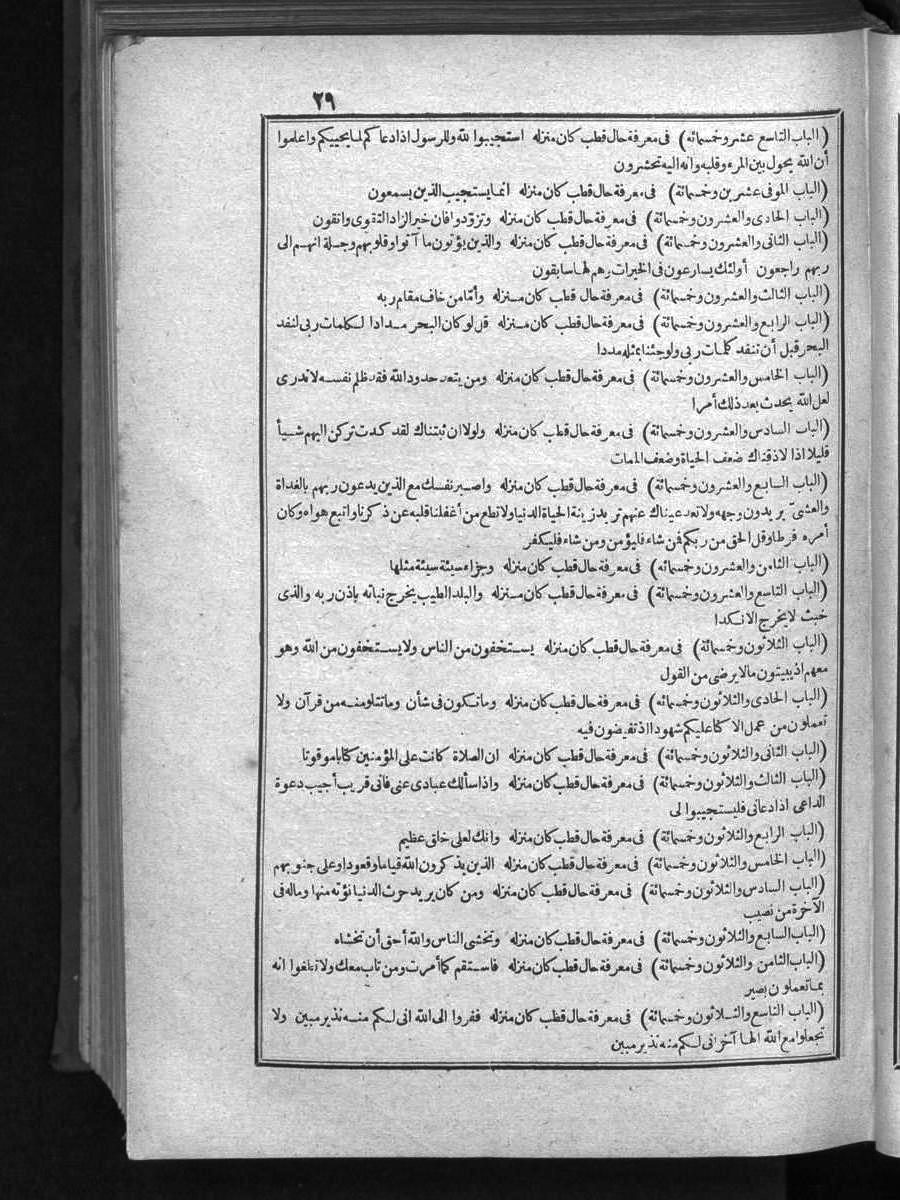 ٢٩
(الباب التاسع عشر وخمسمائه) فى معرفة حال قطب كان منزله استجيبوا لله وللرسول اذا دعاكم لما يحييكم واعلموا
أن الله يحول بين المرء وقلبه وانه اليه تحشرون
(الباب الموفى عشرين وخمسمائة) فى معرفة حال قطب كان منزله انما يستجيب الذين يسمعون
(الباب الحادى والعشرون وخمسمائة) فى معرفة حال قطب كان منزله وتزوّدوا فان خير الزاد التقوى واتقون
(الباب الثانى والعشرون وخمسمائة) فى معرفة حال قطب كان منزله والذين يؤتون ما آتوا وقلوبهم وجلة انهم الى
ربهم راجعون أولئك يسارعون فى الخيرات وهم لها سابقون
(الباب الثالث والعشرون وخمسمائة) فى معرفة حال قطب كان منزله وأمّا من خاف مقام ربه
(الباب الرابع والعشرون وخمسمائة) فى معرفة حال قطب كان منزله قل لو كان البحر مدادا لكلمات ربى لنفد
البحر قبل أن تنفد كلمات ربى ولو جئنا بمثله مددا
(الباب الخامس والعشرون وخمسمائة) فى معرفة حال قطب كان منزله ومن يتعد حدود الله فقد ظلم نفسه لا تدرى
لعل الله يحدث بعد ذلك أمرا
(الباب السادس والعشرون وخمسمائة) فى معرفة حال قطب كان منزله ولولا ان ثبتناك لقد كدت تركن اليهم شيأ
قليلا اذا لاذقناك ضعف الحياة وضعف الممات
(الباب السابع والعشرون وخمسمائة) فى معرفة حال قطب كان منزله واصبر نفسك مع الذين يدعون ربهم بالغداة
والعشىّ يريدون وجهه ولا تعد عيناك عنهم تريد زينة الحياة الدنيا ولا تطع من أغفلنا قلبه عن ذكرنا واتبع هواه وكان
أمره فرطا وقل الحق من ربكم فمن شاء فليؤمن ومن شاء فليكفر
(الباب الثامن والعشرون وخمسمائه) فى معرفة حال قطب كان منزله وجزاء سيئة سيئة مثلها
(الباب التاسع والعشرون وخمسمائة) فى معرفة حال قطب كان منزله والبلد الطيب يخرج نباته باذن ربه والذى
خبث لا يخرج الا نكدا
(الباب الثلاثون وخمسمائة) فى معرفة حال قطب كان منزله يستخفون من الناس ولا يستخفون من الله وهو
معهم اذ يبيتون ما لا يرضى من القول
(الباب الحادى والثلاثون وخمسمائه) فى معرفة حال قطب كان منزله وما تكون فى شأن وما تتلو منه من قرآن ولا
تعملون من عمل الا كنا عليكم شهودا اذ تفيضون فيه
(الباب الثانى والثلاثون وخمسمائه) فى معرفة حال قطب كان منزله ان الصلاة كانت على المؤمنين كتابا موقوتا
(الباب الثالث والثلاثون وخمسمائة) فى معرفة حال قطب كان منزله واذا سألك عبادى عنى فانى قريب أجيب دعوة
الداعى اذا دعانى فليستجيبوا لى
(الباب الرابع والثلاثون وخمسمائة) فى معرفة حال قطب كان منزله وانك لعلى خلق عظيم
(الباب الخامس والثلاثون وخمسمائة) فى معرفة حال قطب كان منزله الذين يذكرون الله قياما وقعودا وعلى جنوبهم
(الباب السادس والثلاثون وخمسمائة) فى معرفة حال قطب كان منزله ومن كان يريد حرث الدنيا نؤته منها وماله فى
الآخرة من نصيب
(الباب السابع والثلاثون وخمسمائة) فى معرفة حال قطب كان منزله وتخشى الناس والله أحق أن تخشاه
(الباب الثامن والثلاثون وخمسمائة) فى معرفة حال قطب كان منزله فاستقم كما أمرت ومن تاب معك ولا تطغوا انه
بما تعملون بصير
(الباب التاسع والثلاثون وخمسمائة) فى معرفة حال قطب كان منزله ففروا الى الله انى لكم منه نذير مبين ولا
تجعلوا مع الله الها آخر انى لكم منه نذير مبين